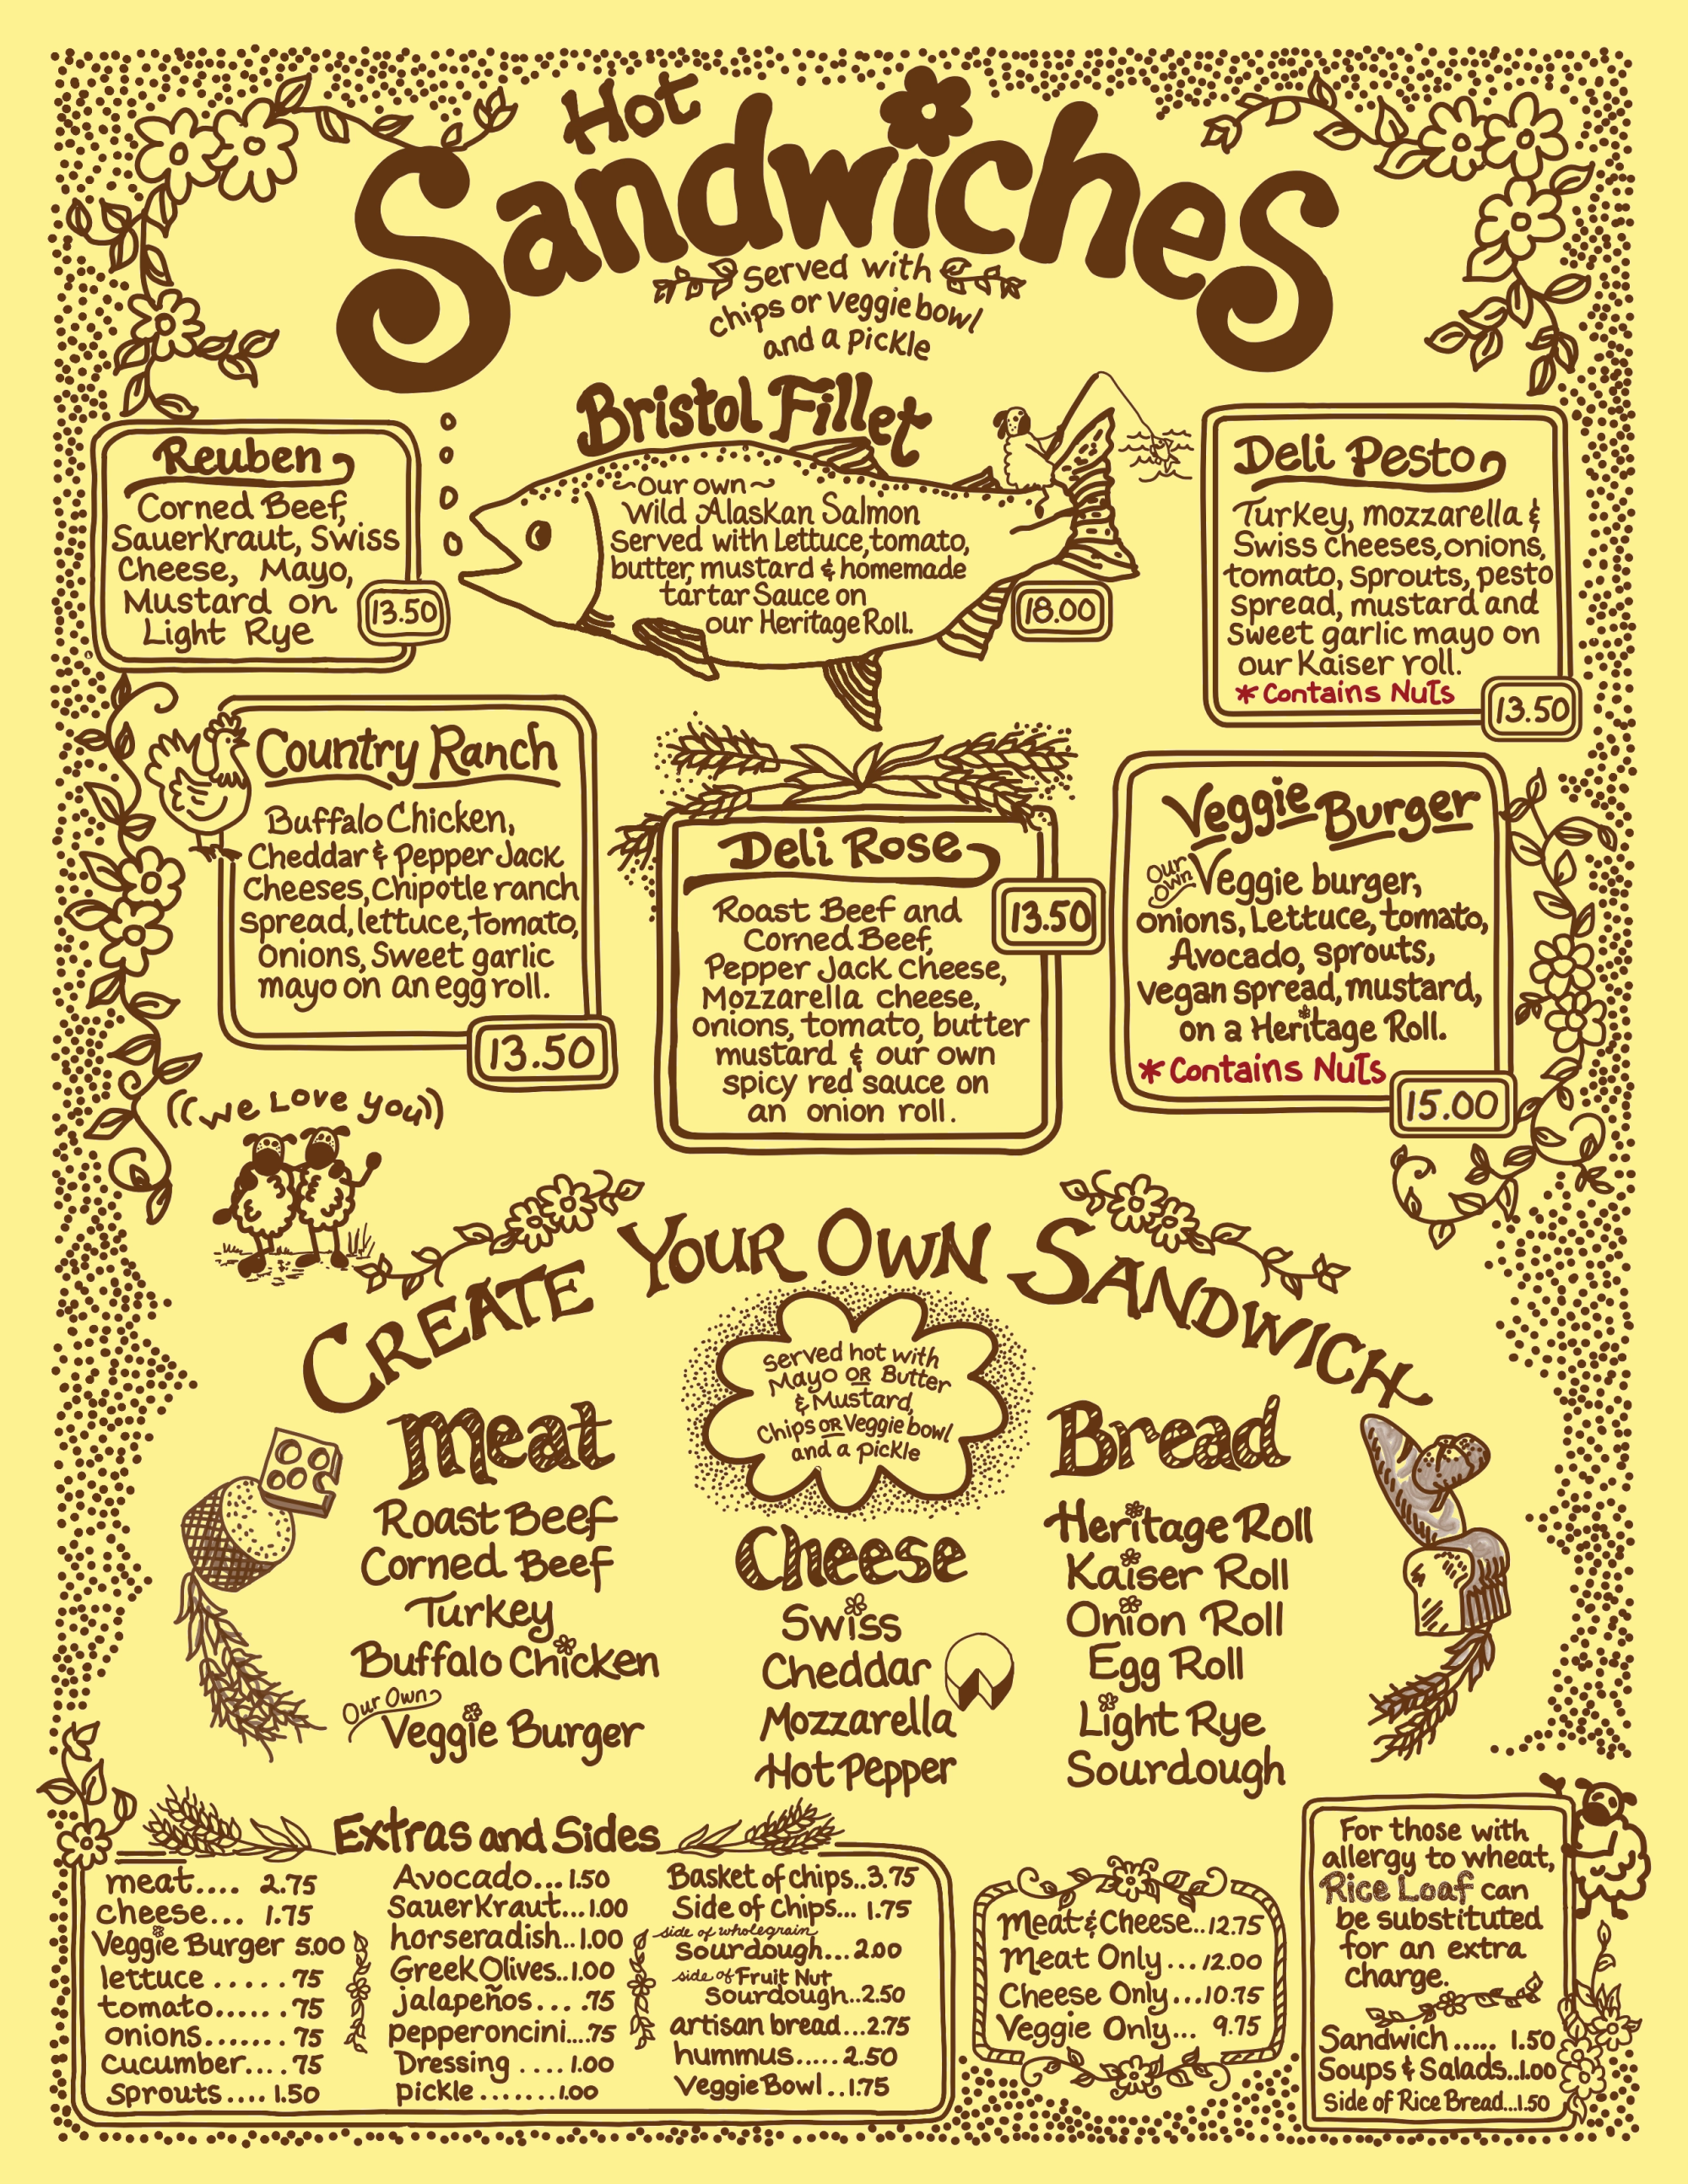 Hot
Sandwiches
Served with
chips or veggie bowl
and a pickle
Reuben
Corned Beef,
Sauerkraut, Swiss
Cheese, Mayo,
Mustard on
Light Rye
13.50
Bristol Fillet
~Our own~
Wild Alaskan Salmon
Served with Lettuce, tomato,
butter, mustard & homemade
tartar Sauce on
our Heritage Roll.
18.00
Deli Pesto
Turkey, mozzarella &
Swiss cheeses, onions,
tomato, Sprouts, pesto
spread, mustard and
Sweet garlic mayo on
our Kaiser roll.
* Contains Nuts
13.50
Country Ranch
Buffalo Chicken,
Cheddar & Pepper Jack
Cheeses, Chipotle ranch
spread, lettuce, tomato,
Onions, Sweet garlic
mayo on an egg roll.
13.50
Deli Rose
Roast Beef and
Corned Beef,
Pepper Jack Cheese,
Mozzarella cheese,
onions, tomato, butter
mustard & our own
spicy red sauce on
an onion roll.
13.50
Veggie Burger
Our Own Veggie burger,
onions, Lettuce, tomato,
Avocado, sprouts,
vegan spread, mustard,
on a Heritage Roll.
* Contains Nuts
15.00
((We Love you))
CREATE YOUR OWN SANDWICH
Served hot with
Mayo OR Butter
& Mustard,
Chips OR Veggie bowl
and a pickle
Meat
Roast Beef
Corned Beef
Turkey
Buffalo Chicken
Our Own
Veggie Burger
Cheese
Swiss
Cheddar
Mozzarella
Hot Pepper
Bread
Heritage Roll
Kaiser Roll
Onion Roll
Egg Roll
Light Rye
Sourdough
Extras and Sides
meat.... 2.75
cheese... 1.75
Veggie Burger 5.00
lettuce ..... .75
tomato...... .75
onions....... .75
Cucumber.... .75
Sprouts.... 1.50
Avocado... 1.50
Sauerkraut... 1.00
horseradish.. 1.00
Greek Olives.. 1.00
jalapeños... .75
pepperoncini... .75
Dressing .... 1.00
pickle ....... 1.00
Basket of chips.. 3.75
Side of Chips... 1.75
side of wholegrain
Sourdough... 2.00
side of Fruit Nut
Sourdough.. 2.50
artisan bread... 2.75
hummus..... 2.50
Veggie Bowl.. 1.75
Meat & Cheese.. 12.75
Meat Only... 12.00
Cheese Only... 10.75
Veggie Only... 9.75
For those with
allergy to wheat,
Rice Loaf can
be substituted
for an extra
charge.
Sandwich ..... 1.50
Soups & Salads.. 1.00
Side of Rice Bread... 1.50